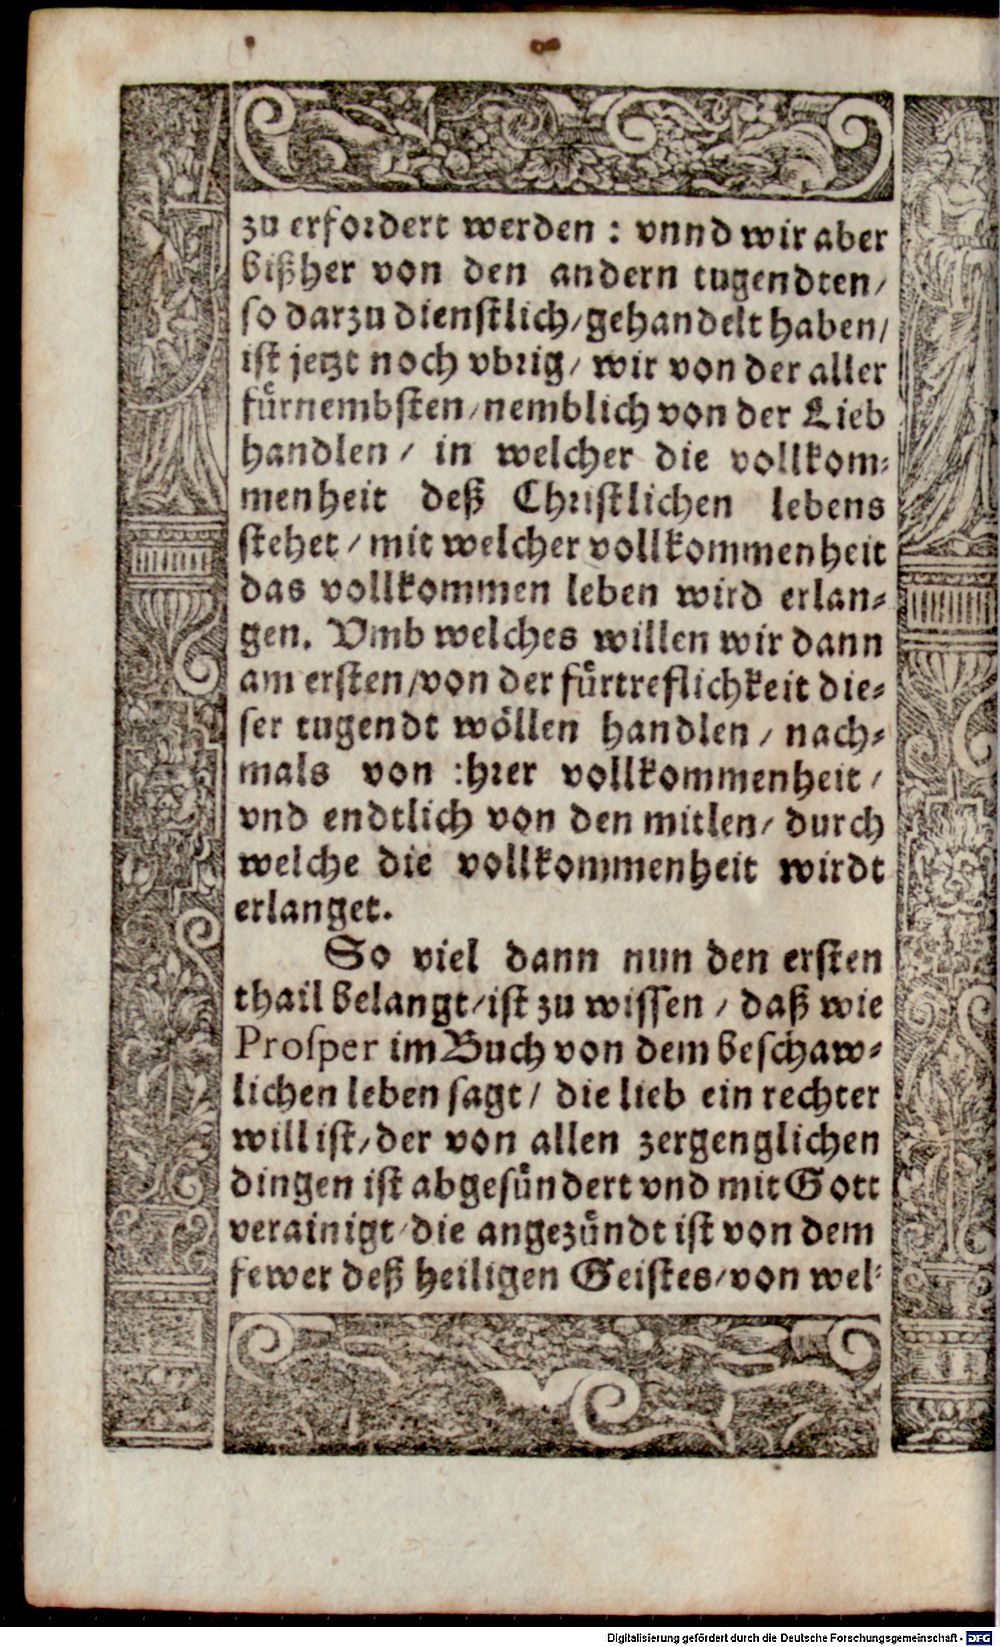 zu erfordert werden : vnnd wir aber
bißher von den andern tugendten/
so darzu dienstlich/gehandelt haben/
ist jetzt noch vbrig/ wir von der aller
fürnembsten/nemblich von der Lieb
handlen / in welcher die vollkom-
menheit deß Christlichen lebens
stehet / mit welcher vollkommenheit
das vollkommen leben wird erlan-
gen. Vmb welches willen wir dann
am ersten/von der fürtreflichkeit die-
ser tugendt wöllen handlen / nach-
mals von ihrer vollkommenheit /
vnd endtlich von den mitlen/ durch
welche die vollkommenheit wirdt
erlanget.
So viel dann nun den ersten
thail belangt/ist zu wissen / daß wie
Prosper im Buch von dem beschaw-
lichen leben sagt/ die lieb ein rechter
will ist/der von allen zergenglichen
dingen ist abgesündert vnd mit Gott
verainigt/die angezündt ist von dem
fewer deß heiligen Geistes/von wel-
Digitalisierung gefördert durch die Deutsche Forschungsgemeinschaft - DFG